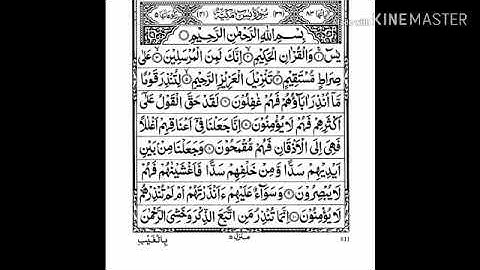 Made with
KINEMASTER
اٰيَاتُهَا ٨٣ (٣٦) سُوْرَةُ يٰسٓ مَكِّيَّةٌ (٤١) رُكُوْعَاتُهَا ٥
بِسْمِ اللّٰهِ الرَّحْمٰنِ الرَّحِيْمِ
يٰسٓ ۝ وَالْقُرْاٰنِ الْحَكِيْمِ ۝ اِنَّكَ لَمِنَ الْمُرْسَلِيْنَ ۝ عَلٰى
صِرَاطٍ مُّسْتَقِيْمٍ ۝ تَنْزِيْلَ الْعَزِيْزِ الرَّحِيْمِ ۝ لِتُنْذِرَ قَوْمًا
مَّاۤ اُنْذِرَ اٰبَآؤُهُمْ فَهُمْ غٰفِلُوْنَ ۝ لَقَدْ حَقَّ الْقَوْلُ عَلٰۤى
اَكْثَرِهِمْ فَهُمْ لَا يُؤْمِنُوْنَ ۝ اِنَّا جَعَلْنَا فِيْۤ اَعْنَاقِهِمْ اَغْلٰلًا
فَهِيَ اِلَى الْاَذْقَانِ فَهُمْ مُّقْمَحُوْنَ ۝ وَجَعَلْنَا مِنْۢ بَيْنِ
اَيْدِيْهِمْ سَدًّا وَّمِنْ خَلْفِهِمْ سَدًّا فَاَغْشَيْنٰهُمْ فَهُمْ
لَا يُبْصِرُوْنَ ۝ وَسَوَآءٌ عَلَيْهِمْ ءَاَنْذَرْتَهُمْ اَمْ لَمْ تُنْذِرْهُمْ
لَا يُؤْمِنُوْنَ ۝ اِنَّمَا تُنْذِرُ مَنِ اتَّبَعَ الذِّكْرَ وَخَشِيَ الرَّحْمٰنَ
بِالْغَيْبِ منزل ٥